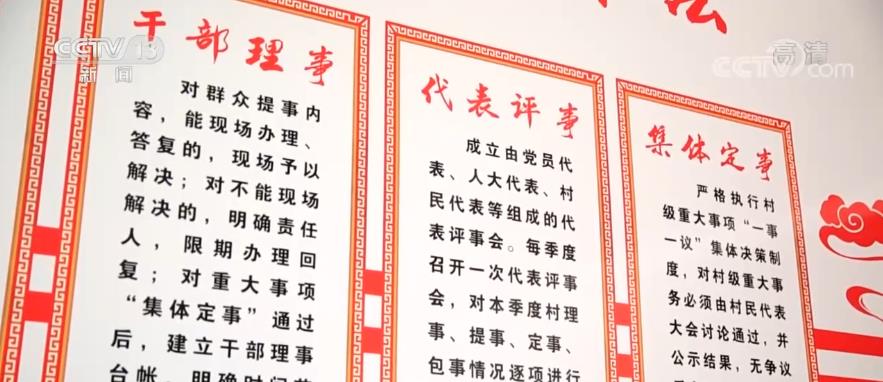 CCTV 13
新闻
高清
CCTV.com
干部理事
对群众提事内
容，能现场办理、
答复的，现场予以
解决；对不能现场
解决的，明确责任
人，限期办理回
复；对重大事项
“集体定事”通过
后，建立干部理事
台帐，明确时间节
代表评事
成立由党员代
表、人大代表、村
民代表等组成的代
表评事会。每季度
召开一次代表评事
会，对本季度村理
事、提事、定事、
包事情况逐项进行
集体定事
严格执行村
级重大事项“一事
一议”集体决策制
度，对村级重大事
务必须由村民代表
大会讨论通过，并
公示结果，无争议